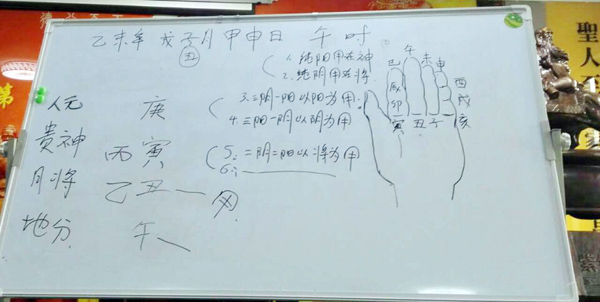 乙未年 戊子月 甲申日 午时
丑
1. 纯阳甲在神
2. 纯阴甲在将.
3. 三阴一阳以阳为用.
4 三阳一阴以阴为用
5. 二阴二阳以将为用
6.
人元 庚
贵神 丙寅
月将 乙丑 — 用
地分. 午
午
巳 未 申
辰 酉
卯 戌
寅 丑 子 亥
聖人
第
紫